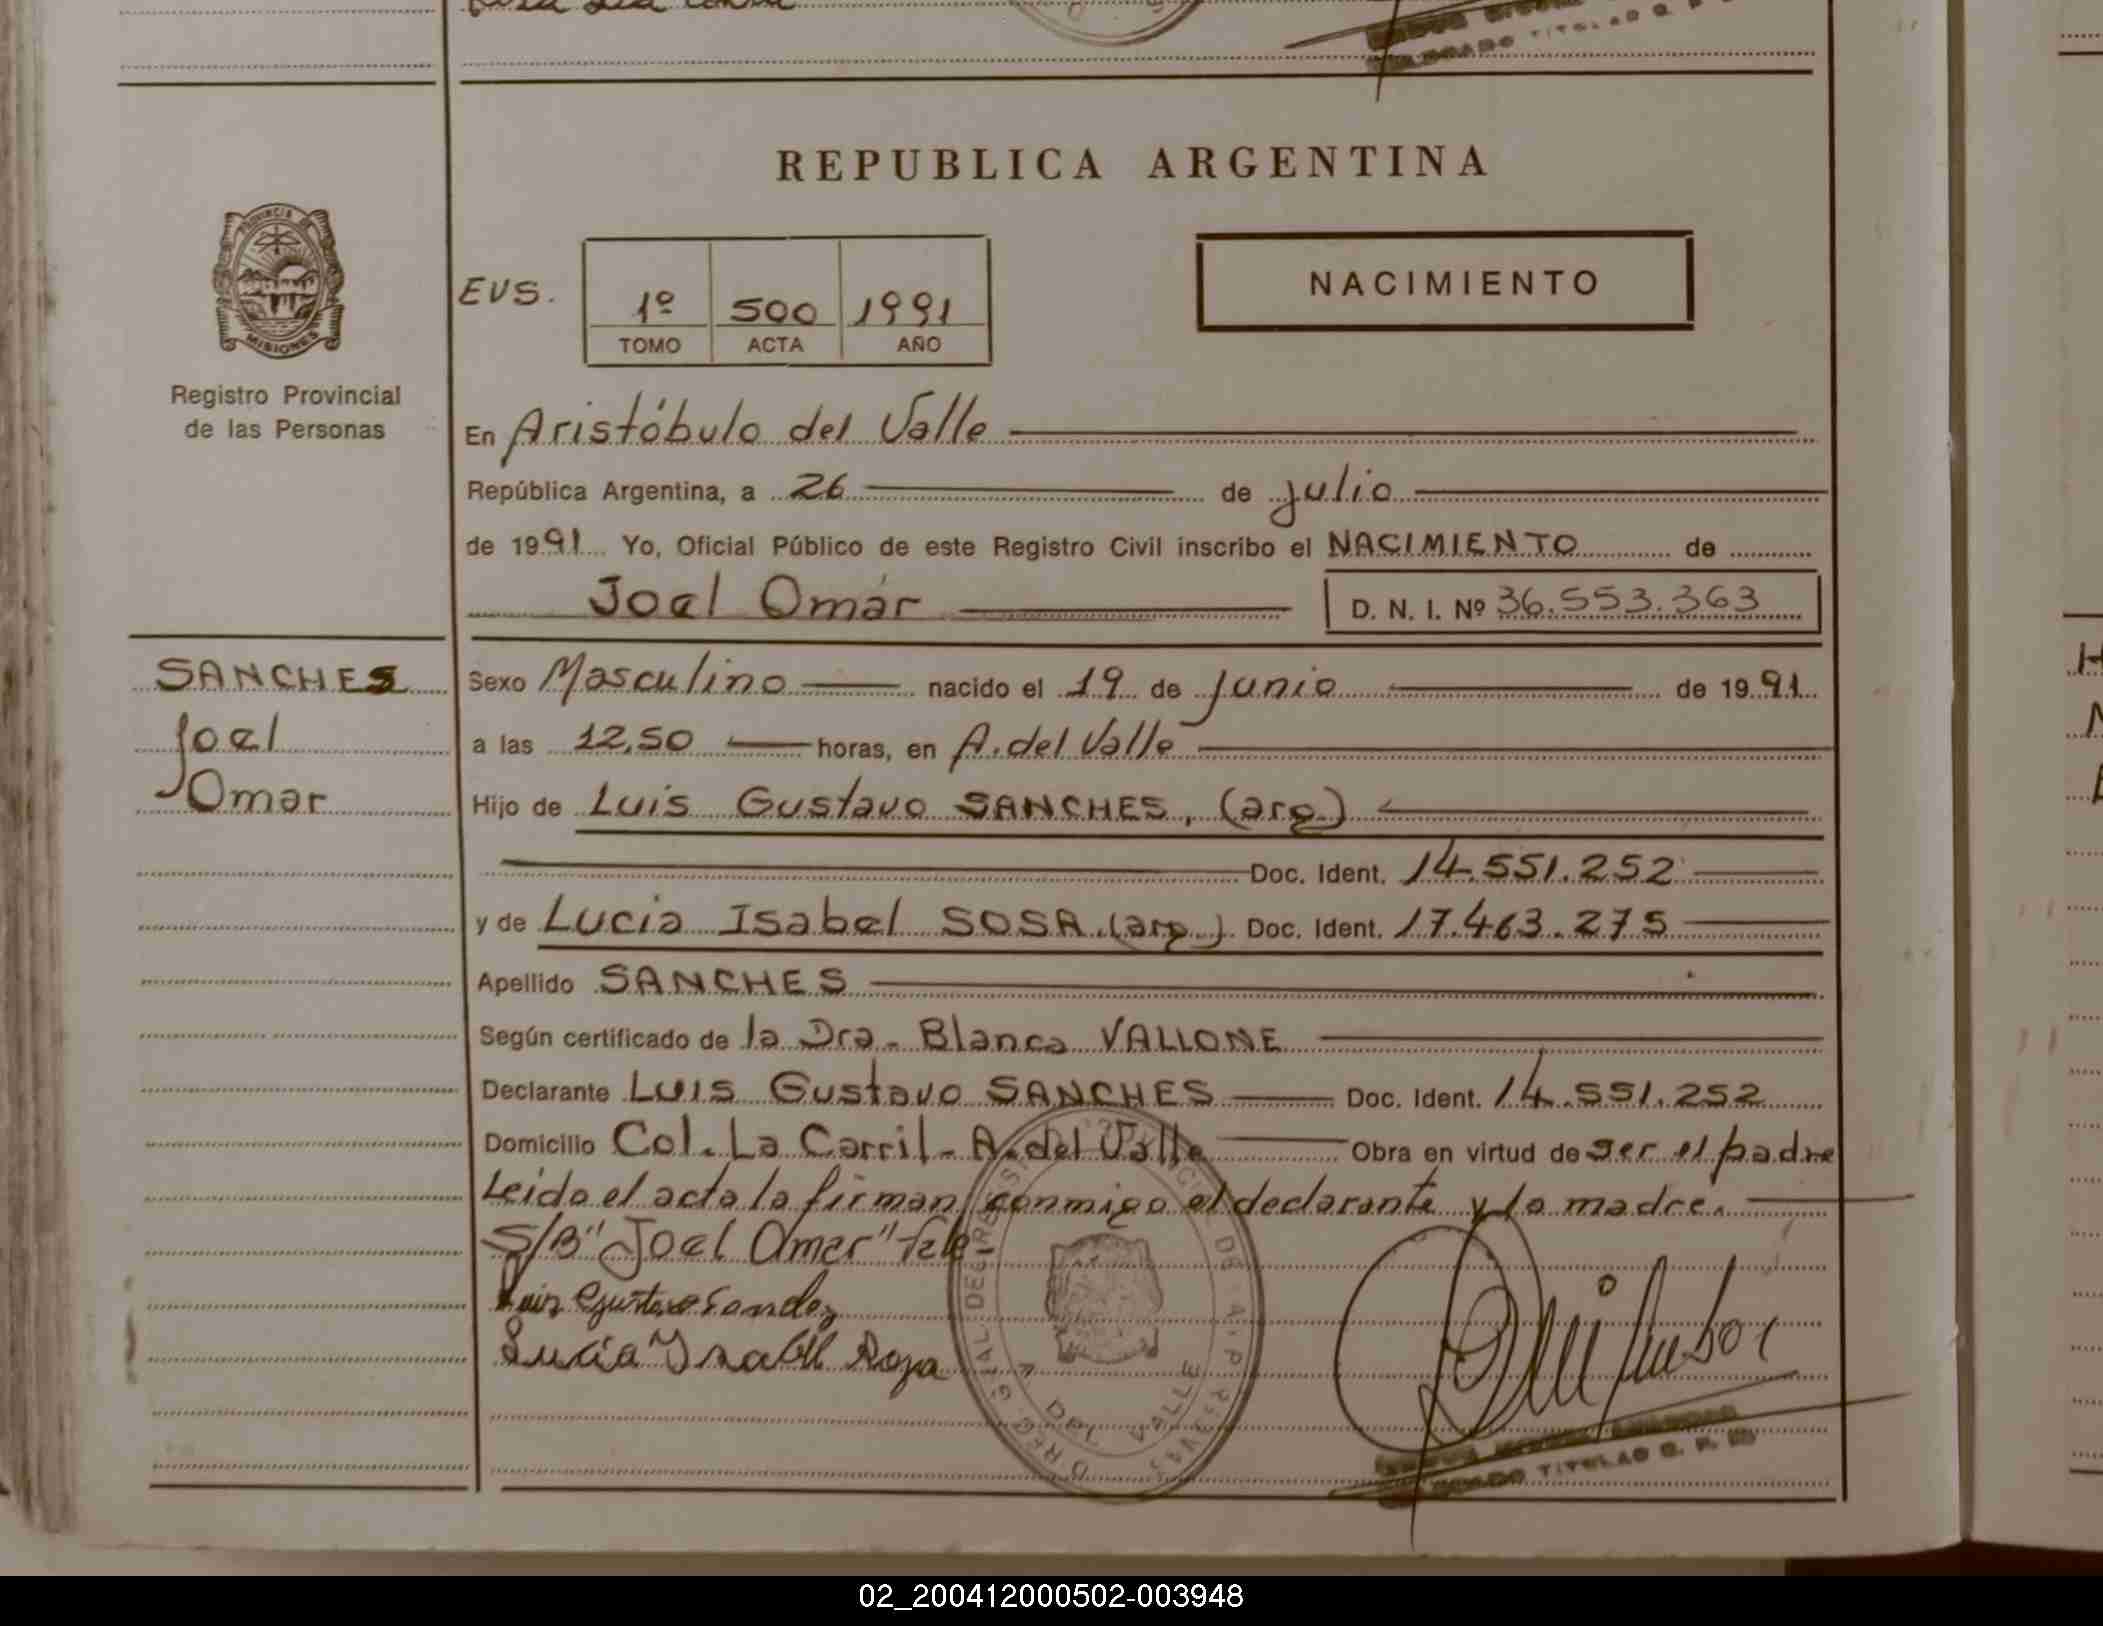 REPUBLICA ARGENTINA
PROVINCIA DE
MISIONES
Registro Provincial
de las Personas
EVS.
1º 500 1991
TOMO ACTA AÑO
NACIMIENTO
En Aristóbulo del Valle
República Argentina, a 26 de julio
de 1991 Yo, Oficial Público de este Registro Civil inscribo el NACIMIENTO de
Joel Omar D. N. I. Nº 36.553.363
SANCHES
Joel
Omar
Sexo Masculino nacido el 19 de junio de 1991
a las 12,50 horas, en A. del Valle
Hijo de Luis Gustavo SANCHES, (arg.)
Doc. Ident. 14.551.252
y de Lucia Isabel SOSA (arg.) Doc. Ident. 17.463.275
Apellido SANCHES
Según certificado de la Dra. Blanca VALLONE
Declarante Luis Gustavo SANCHES Doc. Ident. 14.551.252
Domicilio Col. La Carril - A. del Valle Obra en virtud de ser el padre
Leida el acta la firman conmigo el declarante y la madre.
S/B "Joel Omar" Vale-
Luis Gustavo
Lucia Ysabel
DEL VALLE
TITULAR
02_200412000502-003948